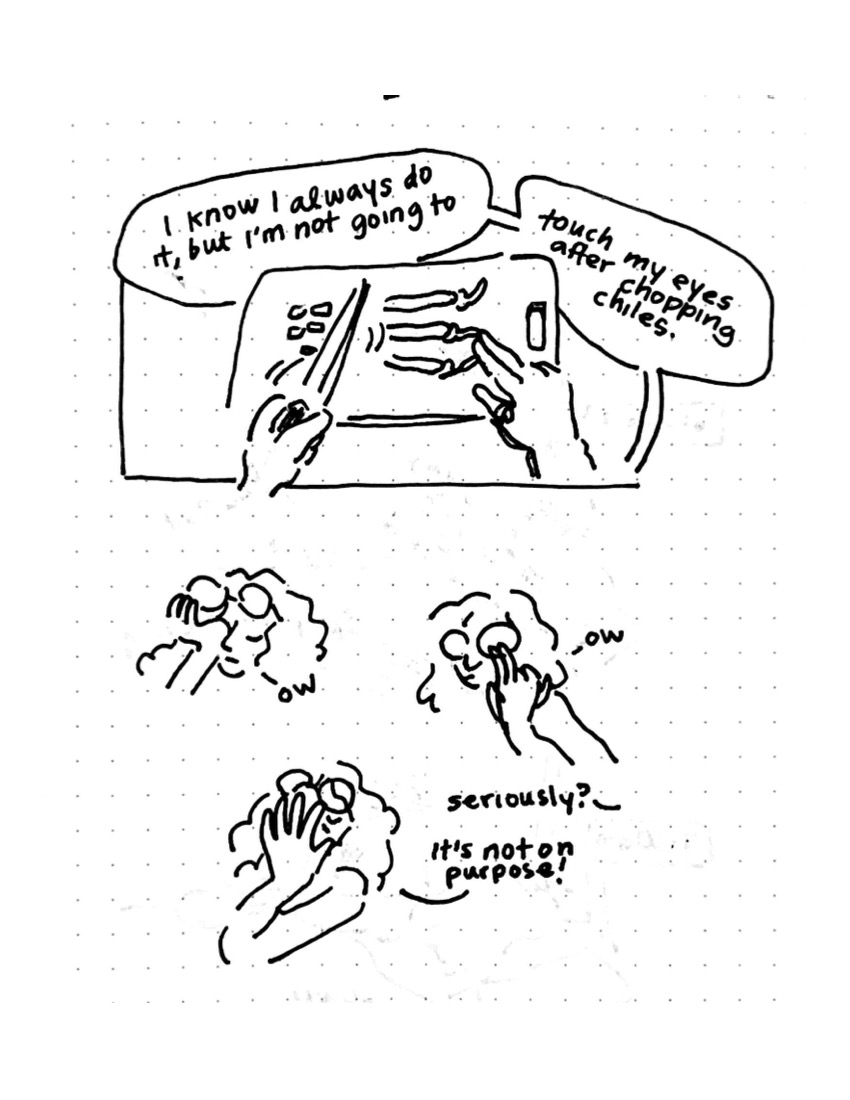 I know I always do
it, but I'm not going to
touch my eyes
after chopping
chiles.
ow
ow
seriously?
it's not on
purpose!